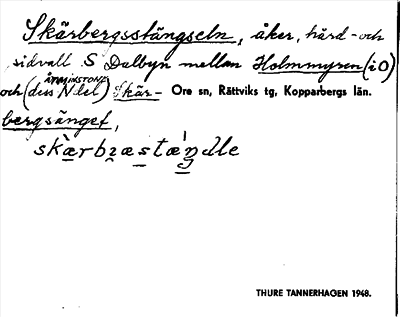 Skärbergsstängseln, åker, hård- och
sidvall S Dalbyn mellan Holmmyren (i O)
och (dess ÅTMINSTONE N del) Skär- Ore sn, Rättviks tg, Kopparbergs län.
bergsänget,
skærbæstæŋdle
THURE TANNERHAGEN 1948.